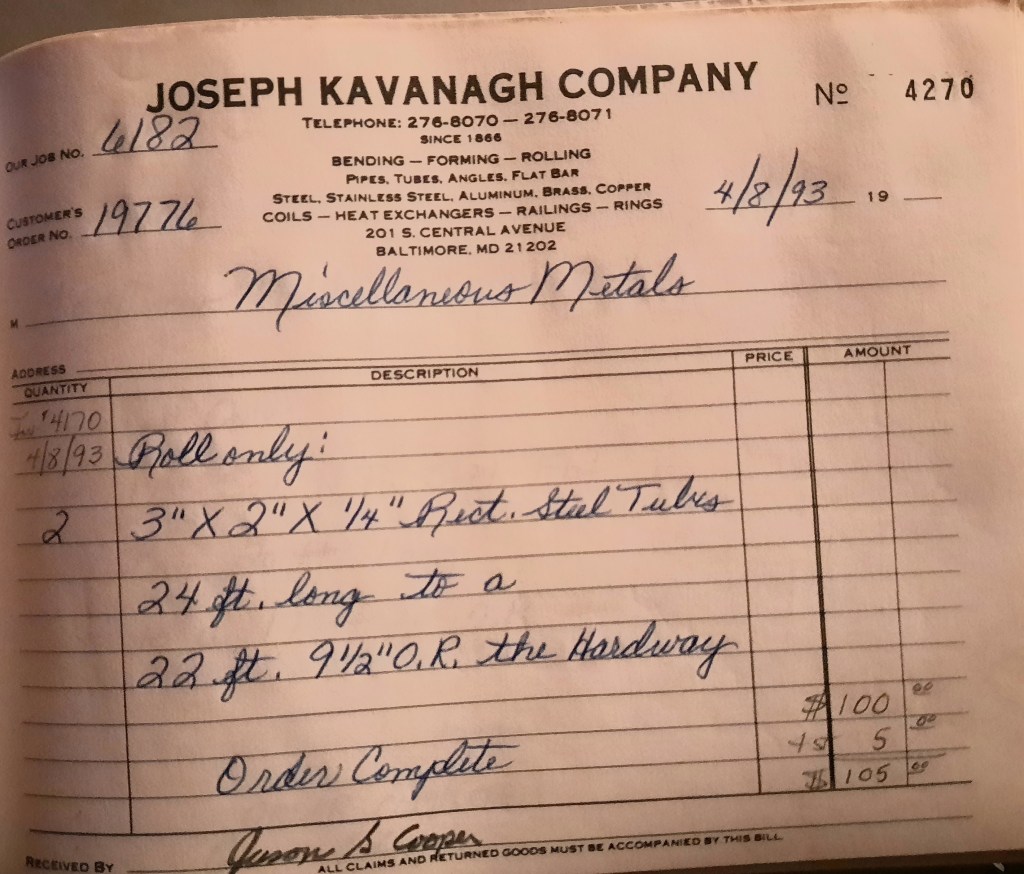 JOSEPH KAVANAGH COMPANY
Nº 4270
TELEPHONE: 276-8070 — 276-8071
SINCE 1866
OUR JOB NO. 6182
BENDING — FORMING — ROLLING
PIPES, TUBES, ANGLES, FLAT BAR
STEEL, STAINLESS STEEL, ALUMINUM, BRASS, COPPER
CUSTOMER'S ORDER NO. 19776
COILS — HEAT EXCHANGERS — RAILINGS — RINGS
4/8/93 19
201 S. CENTRAL AVENUE
BALTIMORE, MD 21202
M Miscellaneous Metals
ADDRESS
QUANTITY DESCRIPTION PRICE AMOUNT
4170
4/8/93 Roll only:
2 3" X 2" X 1/4" Rect. Steel Tubes
24 ft. long to a
22 ft. 9 1/2" O.R. the Hardway
$ 100 00
5 00
Order Complete $ 105 00
RECEIVED BY Jason S Cooper
ALL CLAIMS AND RETURNED GOODS MUST BE ACCOMPANIED BY THIS BILL